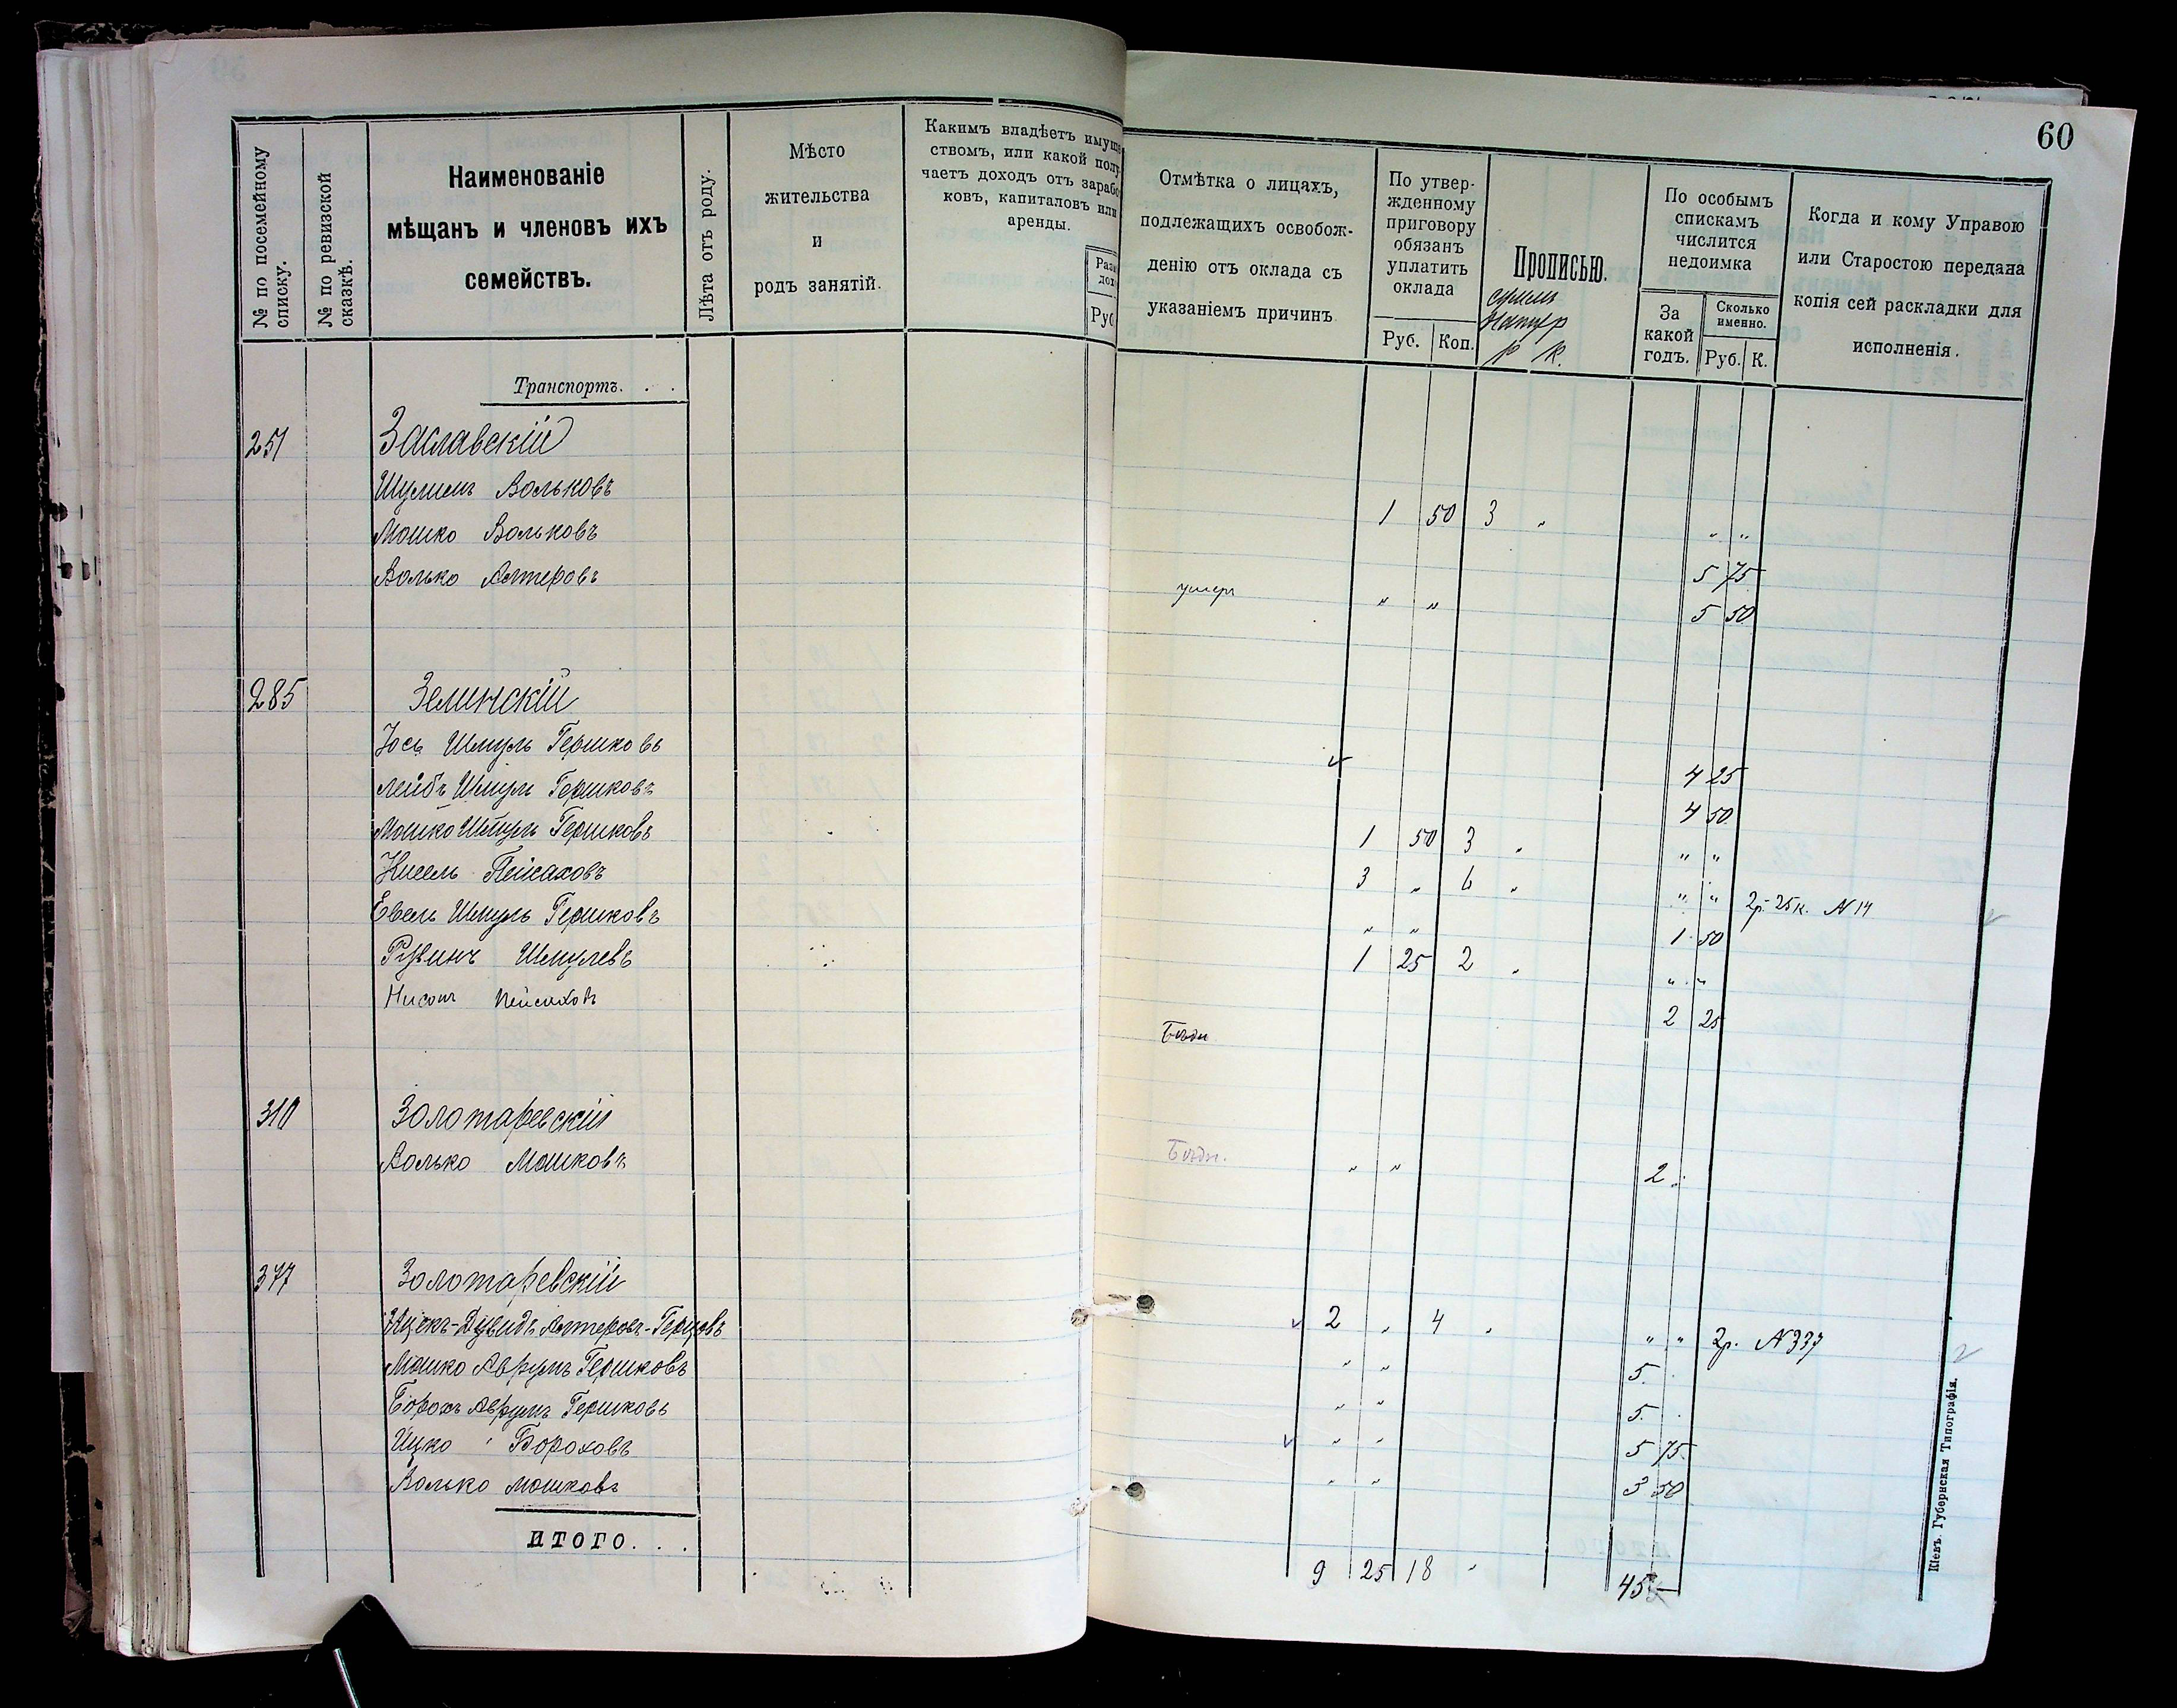 60
№ по посемейному списку.
№ по ревизской сказкѣ.
Наименованіе
мѣщанъ и членовъ ихъ
семействъ.
Лѣта отъ роду.
Мѣсто
жительства
и
родъ занятій.
Какимъ владѣетъ имуще
ствомъ, или какой полу
чаетъ доходъ отъ зарабо
ковъ, капиталовъ или
аренды.
Разм
дох
Руб
Отмѣтка о лицахъ,
подлежащихъ освобож-
денію отъ оклада съ
указаніемъ причинъ
По утвер-
жденному
приговору
обязанъ
уплатить
оклада
Руб. Коп.
Прописью.
р к.
По особымъ
спискамъ
числится
недоимка
За
какой
годъ.
Сколько
именно.
Руб. К.
Когда и кому Управою
или Старостою передана
копія сей раскладки для
исполненія.
Транспортъ. . .
251 Заславскій
Шулимъ Вольковъ 1 50 3 „ „ „
Мошко Вольковъ 5 75
Волько Алтеровъ умеръ „ „ 5 50
285 Зелинскій
Іось Шмуль Гершковъ 4 25
Лейбъ Шмуль Гершковъ 4 50
Мошко Шмуль Гершковъ 1 50 3 „ „ „
Кисель Пейсаховъ 3 „ 6 „ „ „ 2р. 25к. N 14
Евель Шмуль Гершковъ „ „ 1 50
Рувинъ Шмулевъ 1 25 2 „ „ „
Нисонъ Пейсаховъ Бѣдн 2 25
310 Золотаревскій
Волько Мошковъ Бѣдн. „ „ 2 „
377 Золотаревскій
Ицекъ-Дувидъ Алтеровъ-Герцовъ 2 „ 4 „ „ „ 2р. N 337
Мошко Аврумъ Гершковъ „ „ 5.
Борохъ Аврумъ Гершковъ „ „ 5.
Ицко Бороховъ „ „ 5 75
Волько Мошковъ „ „ 3 50
ИТОГО. . . 9 25 18 „ 45
Кіевъ. Губернская Типографія.